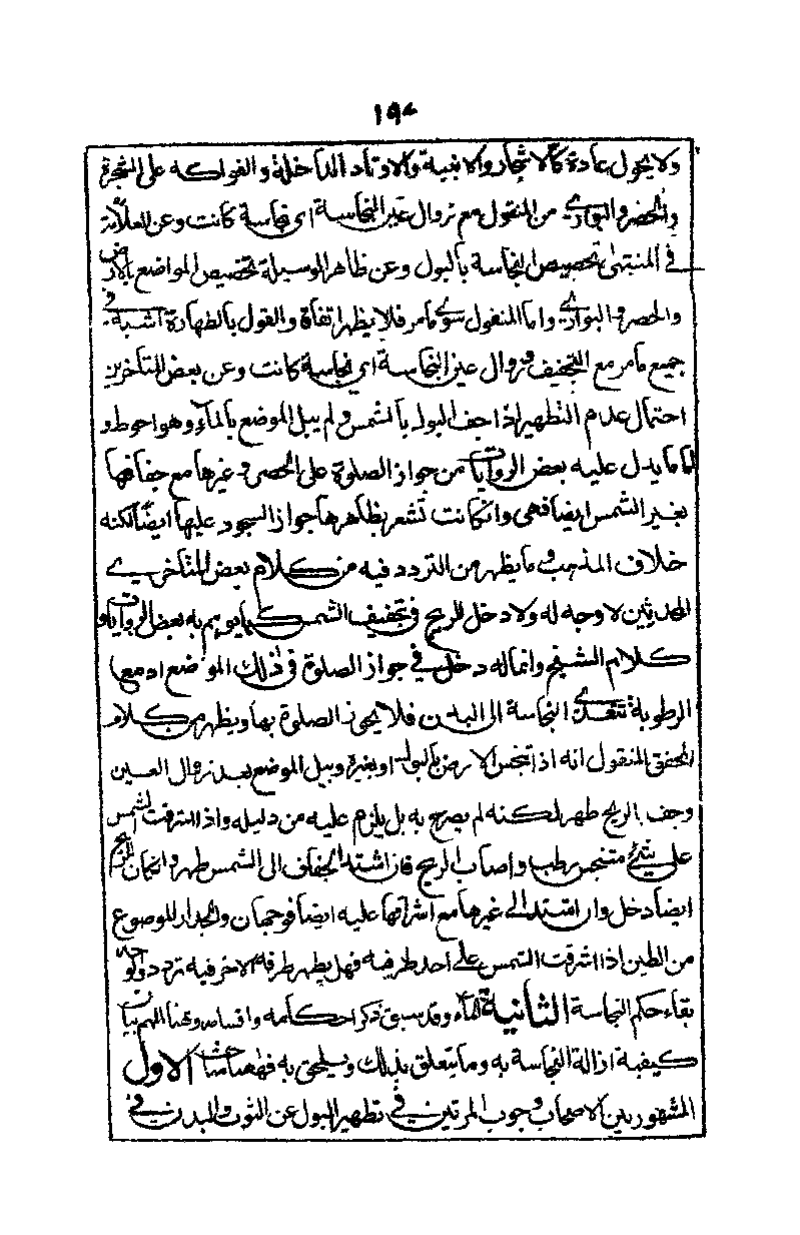 ١٩٨
ولا يحول عادة كالاشجار والابنية والاوتاد الداخلة والفواكه على الشجرة
والحصر والبواري من المنقول مع زوال عين النجاسة اي نجاسة كانت وعن العلامة
في المنتهى تخصيص النجاسة بالبول وعن ظاهر الوسيلة تخصيص المواضع بالارض
والحصر والبواري واما المنقول سوى ما مر فلا يطهر اتفاقا والقول بالطهارة اشبه في
جميع ما مر مع التجفيف وزوال عين النجاسة اي نجاسة كانت وعن بعض المتاخرين
احتمال عدم التطهير اذا جف البول بالشمس ولم يبل الموضع بالماء وهو احوط و
اما ما يدل عليه بعض الروايات من جواز الصلوة على الحصر وغيرها مع جفافها
بغير الشمس ايضا فهى وان كانت تشعر بظاهرها جواز السجود عليها ايضا لكنه
خلاف المذهب وما يظهر من التردد فيه من كلام بعض المتاخري
المحدثين لا وجه له ولا دخل للريح في تجفيف الشمس كما يوهم به بعض الروايات و
كلام الشيخ وانما له دخل في جواز الصلوة في ذلك الموضع اذ مع
الرطوبة تتعدى النجاسة الى البدن فلا يجوز الصلوة بها ويظهر من كلام
المحقق المنقول انه اذا تنجس الارض بالبول او بغيره ويبل الموضع بعد زوال العين
وجف بالريح طهر لكنه لم يصرح به بل يلزم عليه من دليله واذا اشرقت الشمس
على شئ متنجس رطب واصاب الريح فان اشتد الجفاف الى الشمس طهر وان كان للريح
ايضا دخل وان استند الى غيرها مع اشراقها عليه ايضا فوجهان والجدار الموضوع
من الطين اذا اشرقت الشمس على احد طرفيه فهل يطهر طرفه الاخر فيه تردد
بقاء حكم النجاسة الثانية الماء وقد سبق ذكر احكامه واقسامه وهنا المهم بيان
كيفية ازالة النجاسة به وما يتعلق بذلك ويلحق به فههنا مباحث الاول
المشهور بين الاصحاب وجوب المرتين في تطهير البول عن الثوب والبدن في